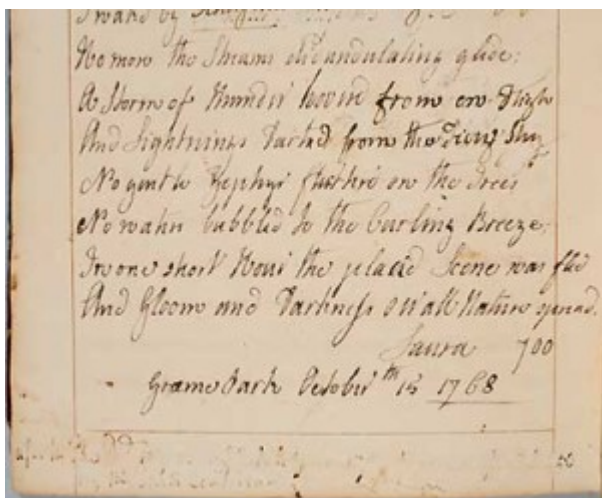 I wak'd by
No more the Streams did undulating glide:
A Storm of Thunder hover'd from on High
And Lightnings Darted from the Firey Sky
No gentle Zephyr flutter'd on the Trees
No water bubbled to the Curling Breeze:
In one short Hour the placid Scene was fled
And Gloom and Darkness o'er all Nature spread.
Laura 700
Græme Park October 15th 1768